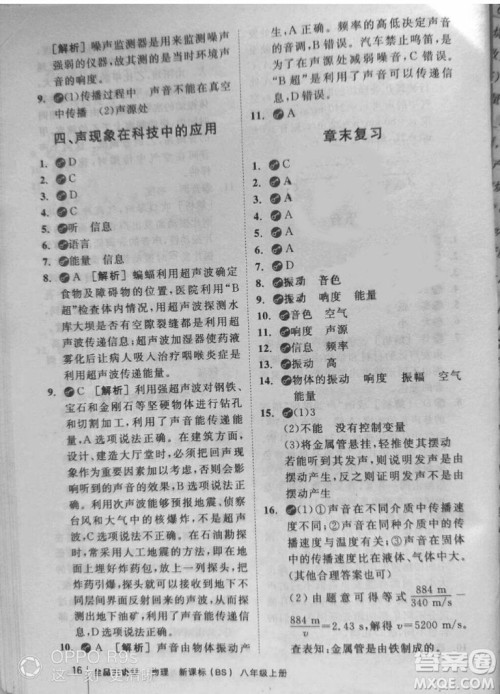 [解析] 噪声监测器是用来监测噪声
强弱的仪器,故其测的是当时环境声
音的响度。
9. (1)传播过程中 声音不能在真空
中传播 (2)声源处
四、声现象在科技中的应用
1. D
2. D
3. D
4. C
5. 听 信息
6. 语言
7. 能量 信息
8. A [解析] 蝙蝠利用超声波确定
食物及障碍物的位置,医院利用“B
超”检查体内情况,用超声波探测水
库大坝是否有空隙裂缝都是利用超
声波传递信息;超声波加湿器使药液
雾化后让病人吸入治疗咽喉炎症是
利用超声波传递能量。
9. C [解析] 利用强超声波对钢铁、
宝石和金刚石等坚硬物体进行钻孔
和切割加工,利用了声音能传递能
量,A选项说法正确。在建筑方面,
设计、建造大厅堂时,必须把回声现
象作为重要因素加以考虑,否则会影
响听到的声音的效果,B选项说法正
确。利用次声波能够预报地震、侦察
台风和大气中的核爆炸,不是超声
波,C选项说法错误。在石油勘探
时,常采用人工地震的方法,即在地
面上埋好炸药包,放上一列探头,把
炸药引爆,探头就可以接收到地下不
同层间界面反射回来的声波,从而探
测出地下油矿,利用了声音能传递信
息,D选项说法正确。
10. A [解析] 声音由物体振动产
生,A正确。频率的高低决定声音
的音调,B错误。汽车禁止鸣笛,是
为了在声源处减弱噪音,C错误。
“B超”是利用了声音可以传递信
息,D错误。
11. A
章末复习
1. C
2. C
3. A
4. A
5. A
6. A
7. D
8. 振动 音色
9. 振动 响度 能量
10. 音色 空气
11. 响度 声源
12. 信息 频率
13. 振动 高
14. 物体的振动 响度 振幅 空气
能量
15. (1)3
(2)不能 没有控制变量
(3)将金属管悬挂,轻推使其摆动
若能听到其发声,则说明反复摆动
能发声,反之则不能发声
16. (1)①声音在不同介质中传播速
度不同;②声音在同种介质中的传
播速度与温度有关;③声音在固体
中的传播速度比在液体、气体中大。
(其他合理答案也可)
(2)由题意可得等式 884 m/340 m/s −
884 m/v = 2.43 s,解得 v=5200 m/s。
由表知金属管是由铁制成的。
16 物理 新课标(BS) 八年级上册
OPPO R9s
答案圈